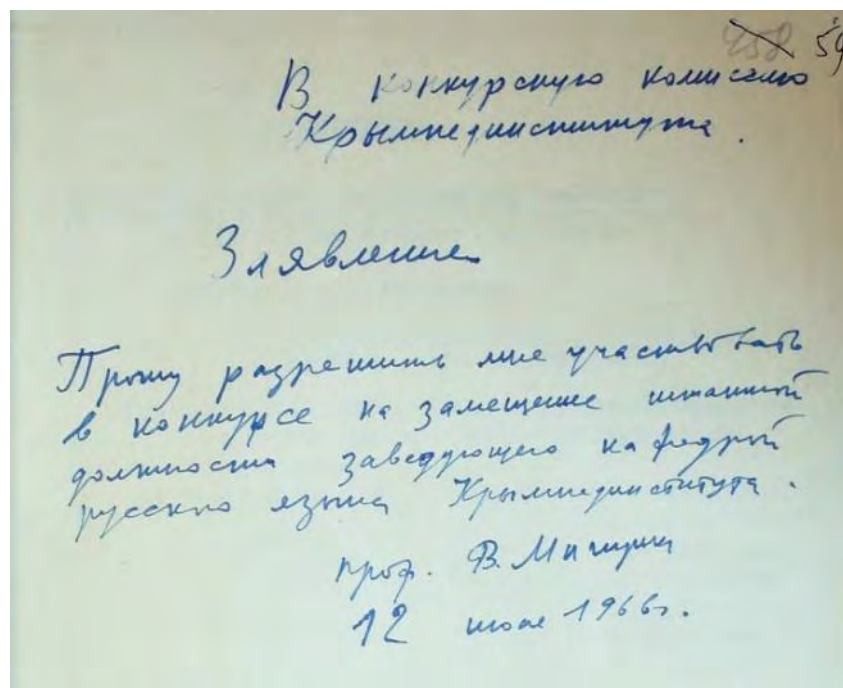 258 59
В конкурсную комиссию
Крымпединститута.
Заявление
Прошу разрешить мне участвовать
в конкурсе на замещение штатной
должности заведующего кафедрой
русского языка Крымпединститута.
проф. В.
12 июля 1966г.